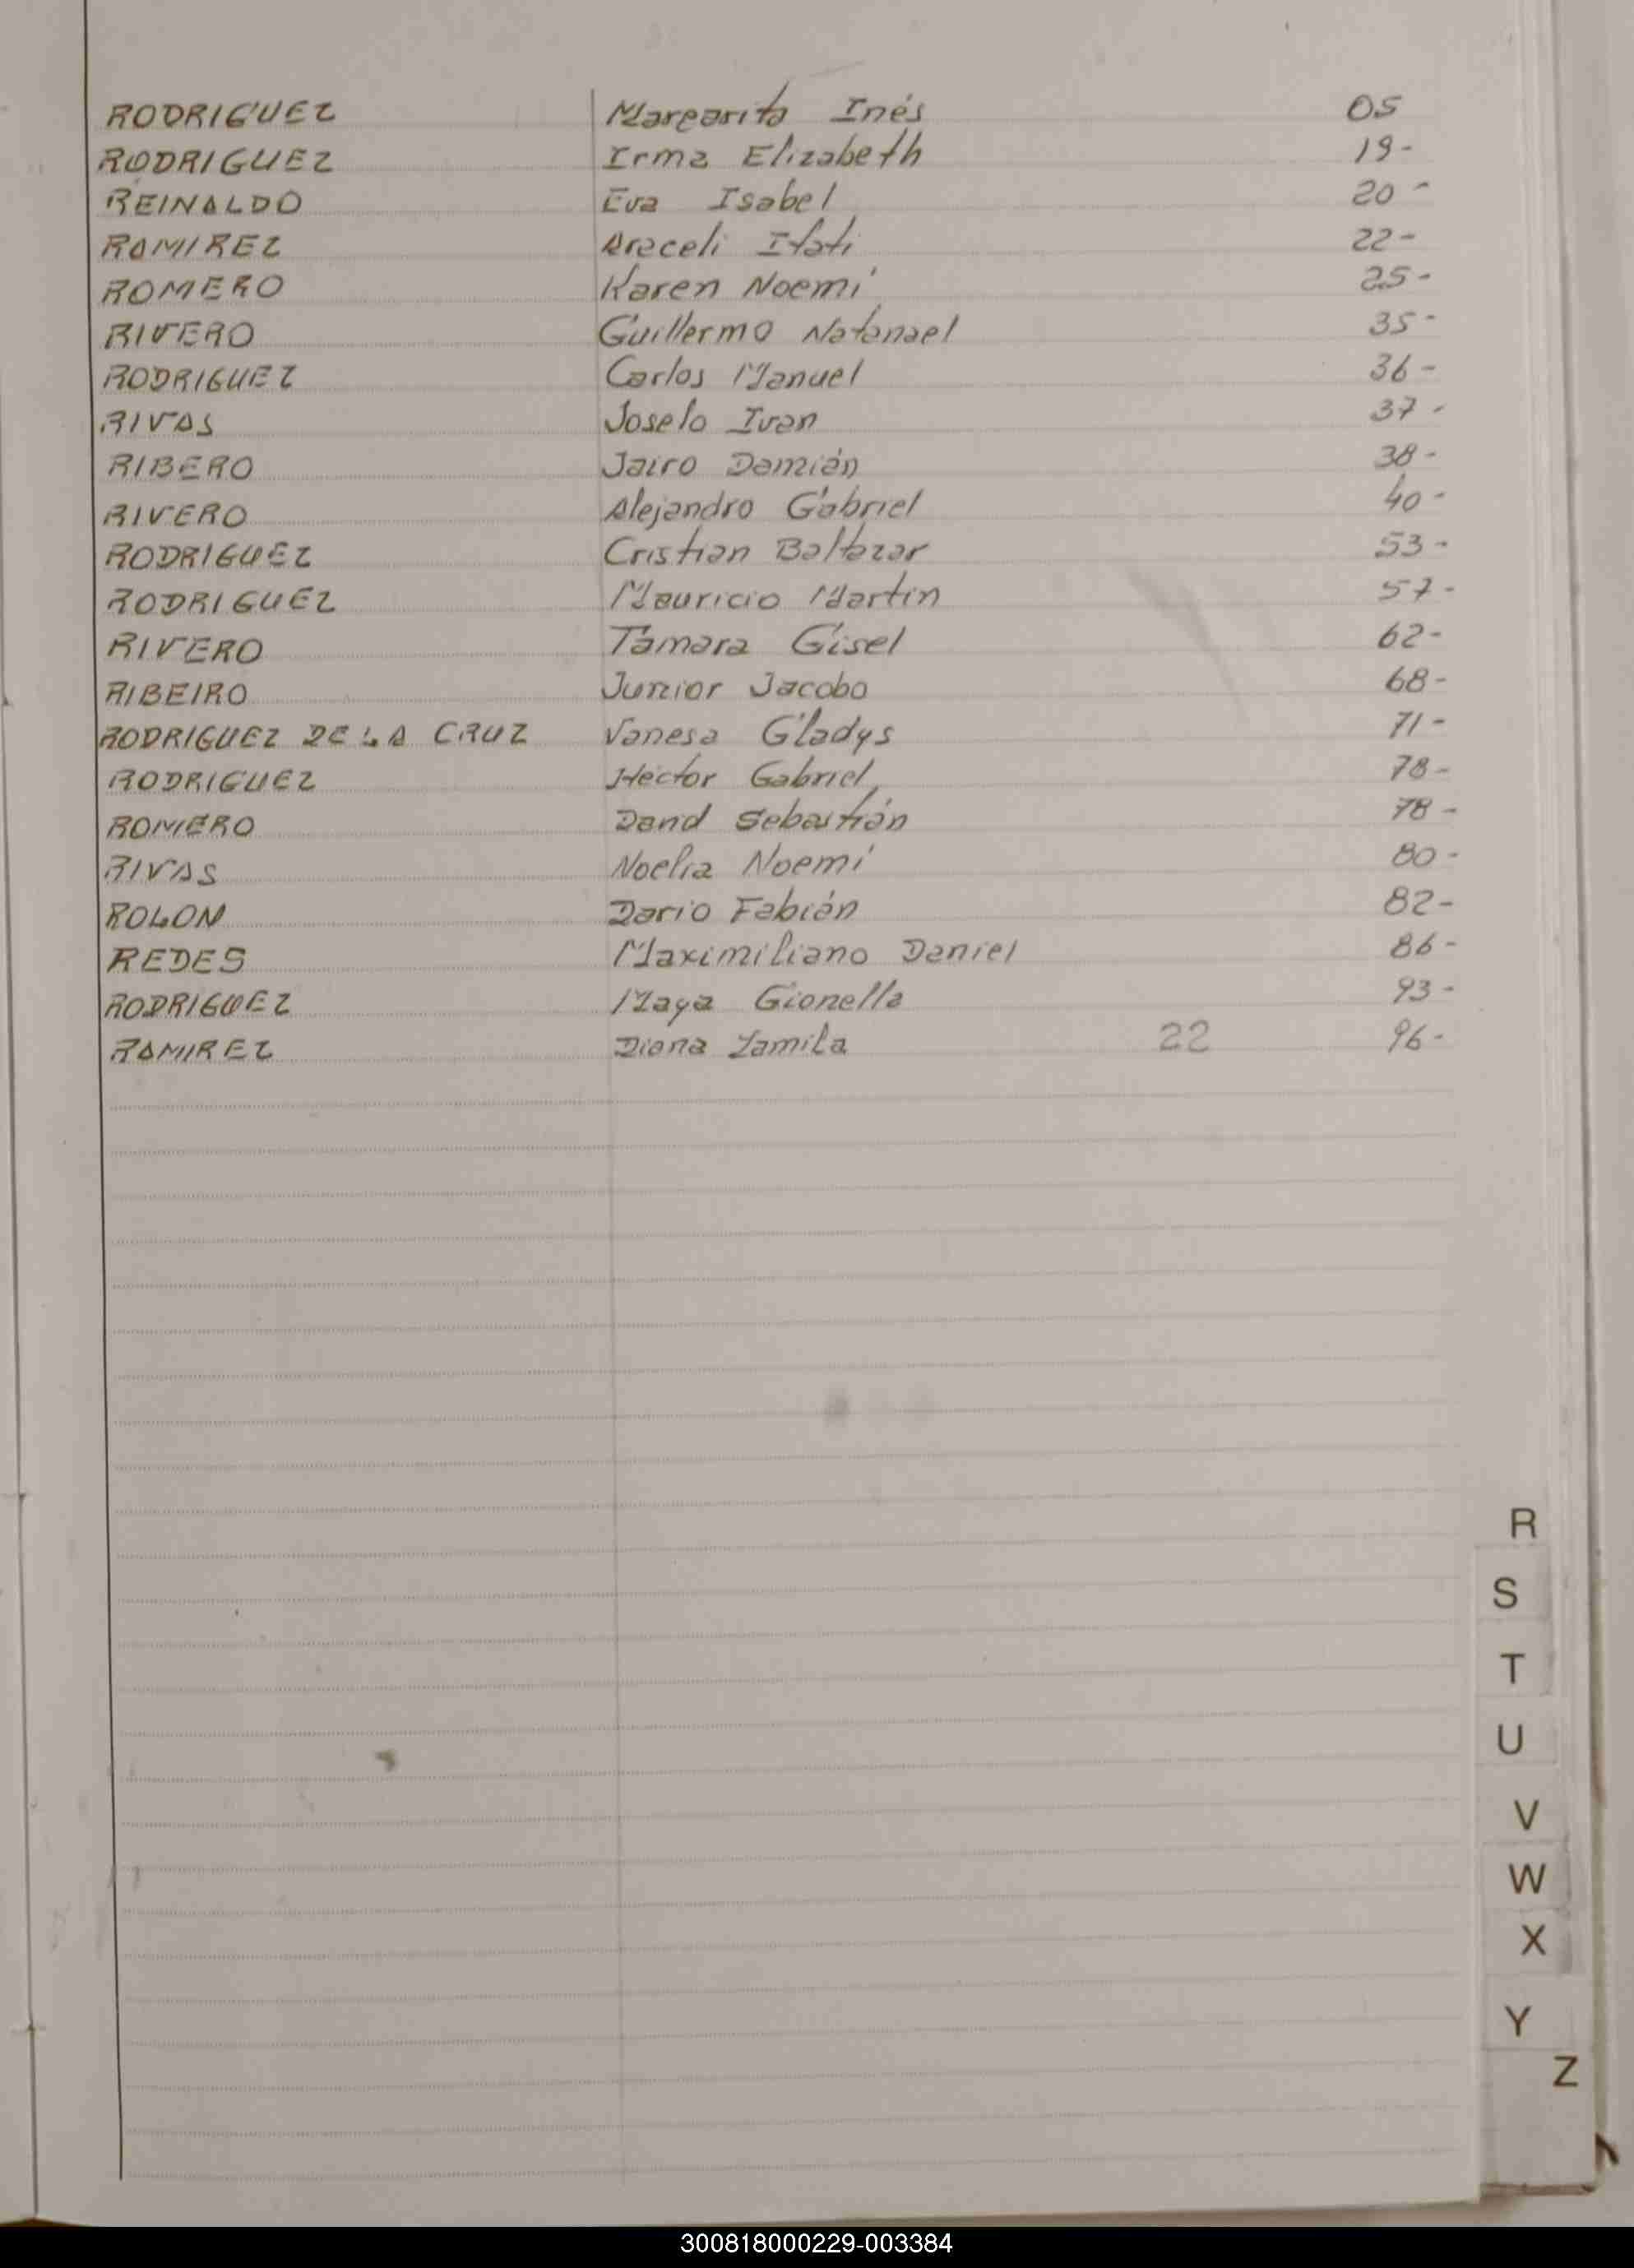 RODRIGUEZ Margarita Inés 05
RODRIGUEZ Irma Elizabeth 19-
REINALDO Eva Isabel 20-
RAMIREZ Araceli Itati 22-
ROMERO Karen Noemí 25-
RIVERO Guillermo Natanael 35-
RODRIGUEZ Carlos Manuel 36-
RIVAS Joselo Ivan 37-
RIBERO Jairo Damián 38-
RIVERO Alejandro Gabriel 40-
RODRIGUEZ Cristian Baltazar 53-
RODRIGUEZ Mauricio Martin 57-
RIVERO Tamara Gisel 62-
RIBEIRO Junior Jacobo 68-
RODRIGUEZ DE LA CRUZ Vanesa Gladys 71-
RODRIGUEZ Hector Gabriel 78-
ROMERO Sebastián 78-
RIVAS Noelia Noemí 80-
ROLON Dario Fabián 82-
REDES Maximiliano Daniel 86-
RODRIGUEZ Maya Gionella 93-
RAMIREZ Diana Yamila 22 96-
R
S
T
U
V
W
X
Y
Z
300818000229-003384